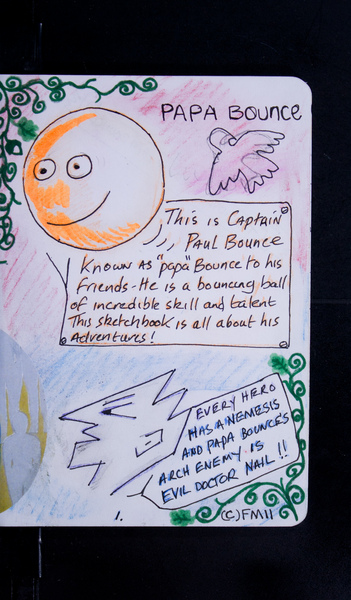 PAPA BOUNCE
This is Captain
PAUL BOUNCE
Known As "papa" Bounce to his
Friends - He is a bouncing ball
of incredible skill and talent
This sketchbook is all about his
Adventures!
EVERY HERO
HAS A NEMESIS
AND PAPA BOUNCE'S
ARCH ENEMY IS
EVIL DOCTOR NAIL!!
1.
(C)FM11